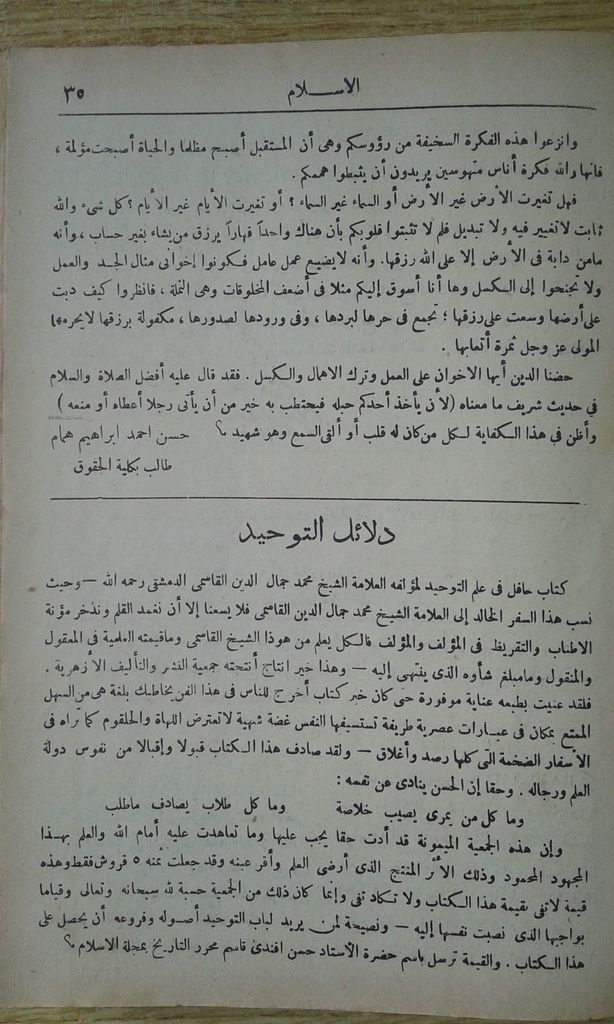 الاســلام
٣٥
وانزعوا هذه الفكرة السخيفة من رؤوسكم وهى أن المستقبل أصبح مظلما والحياة أصبحت مؤلمة ،
فانها والله فكرة أناس متهوسين يريدون أن يثبطوا هممكم .
فهل تغيرت الأرض غير الأرض أو السماء غير السماء ؟ أو تغيرت الأيام غير الأيام ؟ كل شىء والله
ثابت لا تغيير فيه ولا تبديل فلم لا تثبتوا قلوبكم بأن هناك واحداً قهاراً يرزق من يشاء بغير حساب ، وأنه
مامن دابة فى الأرض إلا على الله رزقها . وأنه لا يضيع عمل عامل فكونوا إخوانى مثال الجد والعمل
ولا تجنحوا إلى الكسل وها أنا أسوق إليكم مثلا فى أضعف المخلوقات وهى النملة ، فانظروا كيف دبت
على أرضها وسعت على رزقها ؛ تجمع فى حرها لبردها ، وفى ورودها لصدورها ، مكفولة برزقها لا يحرمها
المولى عز وجل ثمرة أتعابها .
حضنا الدين أيها الاخوان على العمل وترك الاهمال والكسل . فقد قال عليه أفضل الصلاة والسلام
فى حديث شريف ما معناه (لأن يأخذ أحدكم حبله فيحتطب به خير من أن يأتى رجلا أعطاه أو منعه )
وأظن فى هذا الكفاية لكل من كان له قلب أو ألقى السمع وهو شهيد ؟ حسن احمد ابراهيم همام
طالب بكلية الحقوق
دلائل التوحيد
كتاب حافل فى علم التوحيد لمؤلفه العلامة الشيخ محمد جمال الدين القاسمى الدمشقى رحمه الله — وحيث
نسب هذا السفر الخالد إلى العلامة الشيخ محمد جمال الدين القاسمى فلا يسعنا إلا أن نغمد القلم ونذخر مؤنة
الاطناب والتقريظ فى المؤلف والمؤلف فالكل يعلم من هوذا الشيخ القاسمى وماقيمته العلمية فى المعقول
والمنقول ومامبلغ شأوه الذى ينتهى إليه — وهذا خير انتاج أنتجته جمعية النشر والتأليف الأزهرية .
فلقد عنيت بطبعه عناية موفورة حتى كان خير كتاب أخرج للناس فى هذا الفن يخاطبك بلغة هى من السهل
الممتع بمكان فى عبارات عصرية طريفة تستسيغها النفس غضة شهية لا تعترض اللهاة والحلقوم كما تراه فى
الأسفار الضخمة التى كلها رصد وأغلاق — ولقد صادف هذا الكتاب قبولا وإقبالا من نفوس دولة
العلم ورجاله . وحقا إن الحسن ينادى عن نفسه :
وما كل من يمرى يصيب خلاصة وما كل طلاب يصادف ماطلب
وإن هذه الجمعية الميمونة قد أدت حقا يجب عليها وما تعاهدت عليه أمام الله والعلم بهذا
المجهود المحمود وذلك الأثر المنتج الذى أرضى العلم وأقر عينه وقد جعلت ثمنه ٥ قروش فقط وهذه
قيمة لا تفى بقيمة هذا الكتاب ولا تكاد تفى وإنما كان ذلك من الجمعية حسبة لله سبحانه وتعالى وقياما
بواجبها الذى نصبت نفسها إليه — ونصيحة لمن يريد لباب التوحيد أصوله وفروعه أن يحصل على
هذا الكتاب . والقيمة ترسل باسم حضرة الأستاذ حسن افندى قاسم محرر التاريخ بمجلة الاسلام ؟